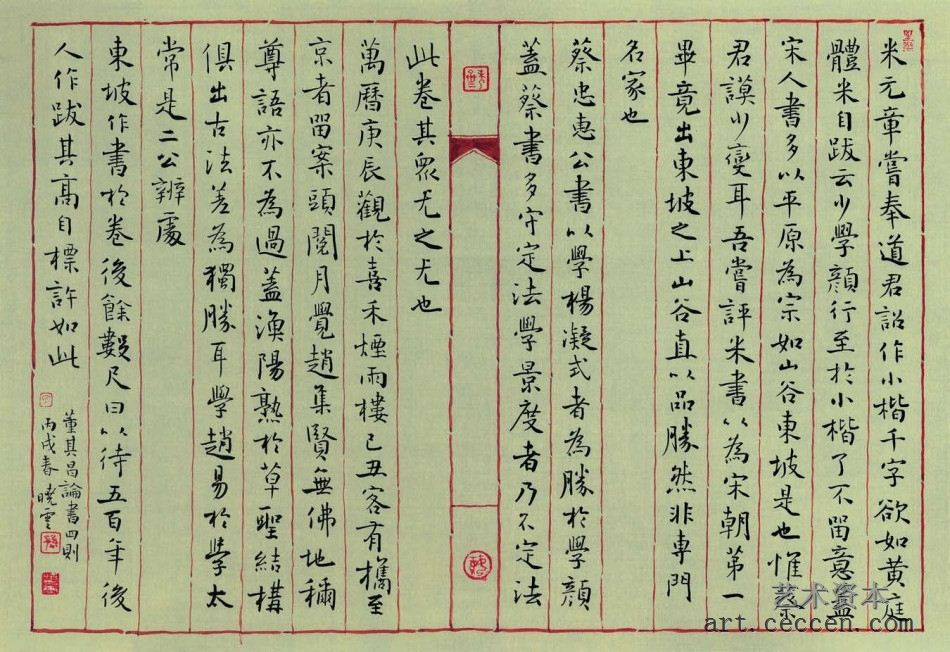 米元章嘗奉道君詔作小楷千字欲如黄庭
體米自跋云少學顔行至於小楷了不留意蓋
宋人書多以平原為宗如山谷東坡是也惟
君謨少變耳吾嘗評米書以為宋朝第一
畢竟出東坡之上山谷直以品勝然非專門
名家也
蔡忠惠公書以學楊凝式者為勝於學顔
蓋蔡書多守定法學景度者乃不定法
此卷其眾尤之尤也
萬曆庚辰觀於喜禾煙雨樓己丑客有攜至
京者留案頭閱月覺趙集賢無佛地稱
尊語亦不為過蓋漁陽熟於草聖結構
俱出古法差為獨勝耳學趙易於學太
常是二公辨處
東坡作書於卷後餘數尺曰以待五百年後
人作跋其高自標許如此
董其昌論書四則
丙戌春曉雲
艺术资本
art.ceccen.com